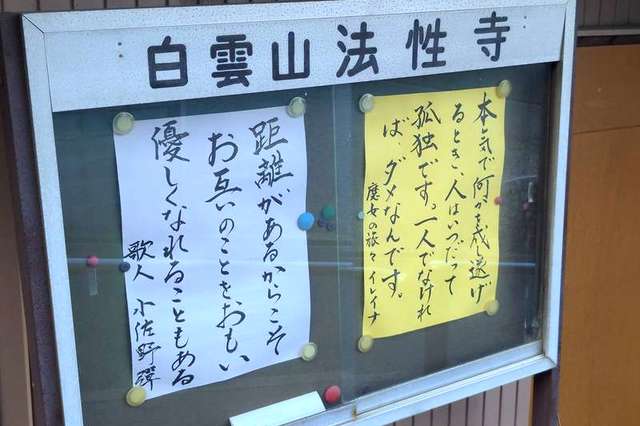 白雲山法性寺
本気で何かを成遂げ
るとき、人はいつだって
孤独です。一人でなけれ
ば、ダメなんです。
魔女の旅々 イレイナ
距離があるからこそ
お互いのことをおもい
優しくなれることもある
歌人 小佐野彈